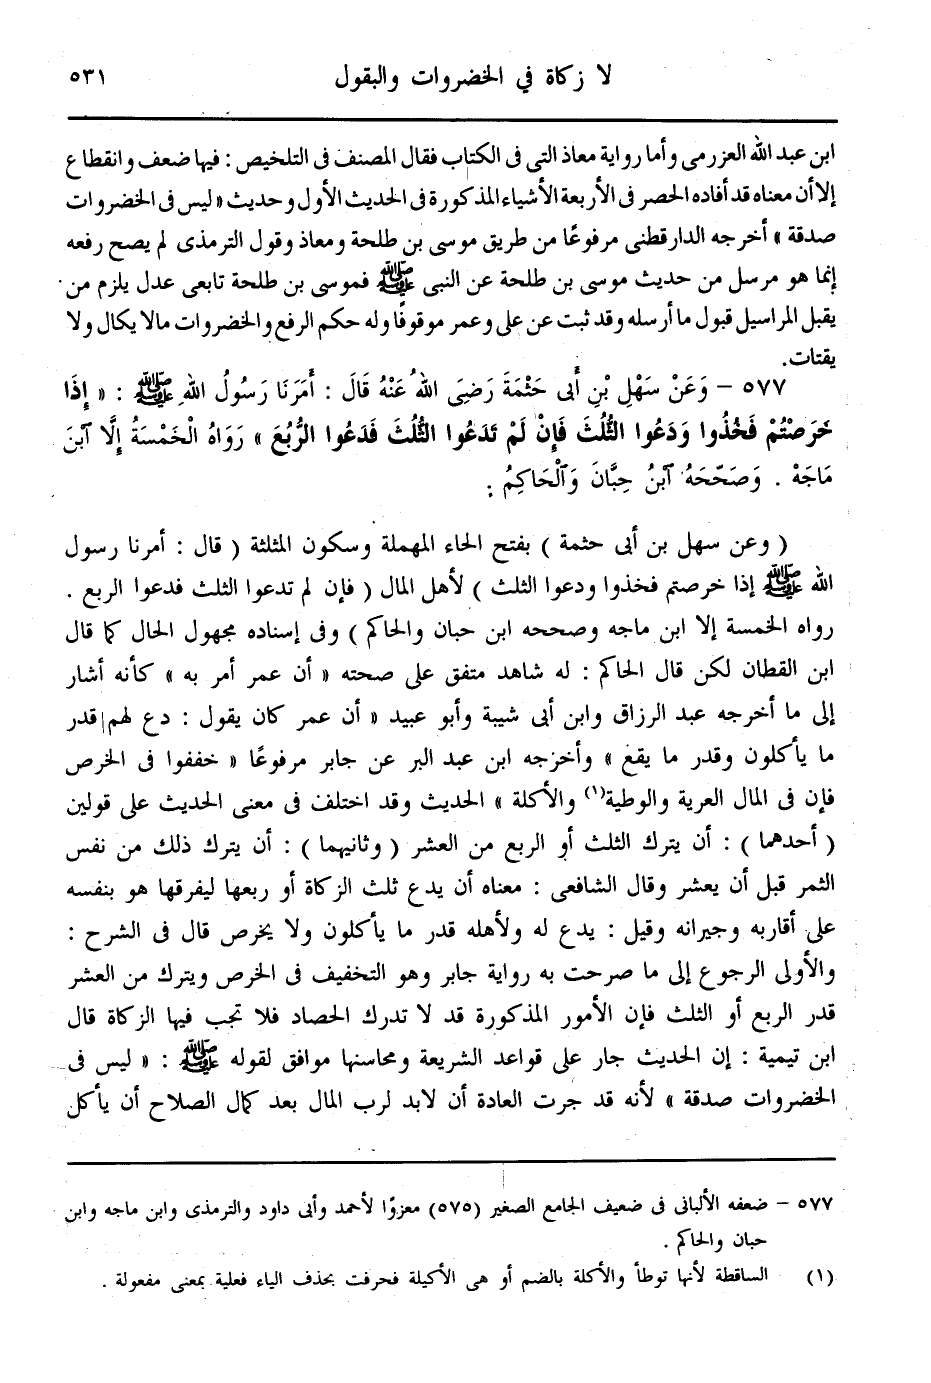 لا زكاة في الخضروات والبقول ٥٣١
ابن عبد الله العزرمى وأما رواية معاذ التى فى الكتاب فقال المصنف فى التلخيص : فيها ضعف وانقطاع
إلا أن معناه قد أفاده الحصر فى الأربعة الأشياء المذكورة فى الحديث الأول وحديث « ليس فى الخضروات
صدقة » أخرجه الدارقطنى مرفوعًا من طريق موسى بن طلحة ومعاذ وقول الترمذى لم يصح رفعه
إنما هو مرسل من حديث موسى بن طلحة عن النبى ﷺ فموسى بن طلحة تابعى عدل يلزم من
يقبل المراسيل قبول ما أرسله وقد ثبت عن على وعمر موقوفًا وله حكم الرفع والخضروات مالا يكال ولا
يقتات.
٥٧٧ – وَعَنْ سَهْلِ بْنِ أَبى حَثْمَةَ رَضِىَ اللهُ عَنْهُ قَالَ : أَمَرَنَا رَسُولُ اللهِ ﷺ : « إِذَا
خَرَصْتُمْ فَخُذُوا وَدَعُوا الثُّلُثَ فَإِنْ لَمْ تَدَعُوا الثُّلُثَ فَدَعُوا الرُّبُعَ » رَوَاهُ الْخَمْسَةُ إِلَّا ابْنَ
مَاجَهْ . وَصَحَّحَهُ ابْنُ حِبَّانَ وَالْحَاكِمُ :
( وعن سهل بن أبى حثمة ) بفتح الحاء المهملة وسكون المثلثة ( قال : أمرنا رسول
الله ﷺ إذا خرصتم فخذوا ودعوا الثلث ) لأهل المال ( فإن لم تدعوا الثلث فدعوا الربع .
رواه الخمسة إلا ابن ماجه وصححه ابن حبان والحاكم ) وفى إسناده مجهول الحال كما قال
ابن القطان لكن قال الحاكم : له شاهد متفق على صحته « أن عمر أمر به » كأنه أشار
إلى ما أخرجه عبد الرزاق وابن أبى شيبة وأبو عبيد « أن عمر كان يقول : دع لهم قدر
ما يأكلون وقدر ما يقع » وأخرجه ابن عبد البر عن جابر مرفوعًا « خففوا فى الخرص
فإن فى المال العرية والوطية(١) والأكلة » الحديث وقد اختلف فى معنى الحديث على قولين
( أحدهما ) : أن يترك الثلث أو الربع من العشر ( وثانيهما ) : أن يترك ذلك من نفس
الثمر قبل أن يعشر وقال الشافعى : معناه أن يدع ثلث الزكاة أو ربعها ليفرقها هو بنفسه
على أقاربه وجيرانه وقيل : يدع له ولأهله قدر ما يأكلون ولا يخرص قال فى الشرح :
والأولى الرجوع إلى ما صرحت به رواية جابر وهو التخفيف فى الخرص ويترك من العشر
قدر الربع أو الثلث فإن الأمور المذكورة قد لا تدرك الحصاد فلا تجب فيها الزكاة قال
ابن تيمية : إن الحديث جار على قواعد الشريعة ومحاسنها موافق لقوله ﷺ : « ليس فى
الخضروات صدقة » لأنه قد جرت العادة أن لابد لرب المال بعد كمال الصلاح أن يأكل
٥٧٧ – ضعفه الألبانى فى ضعيف الجامع الصغير (٥٧٥) معزوًا لأحمد وأبى داود والترمذى وابن ماجه وابن
حبان والحاكم .
(١) الساقطة لأنها توطأ والأكلة بالضم أو هى الأكيلة فحرفت بحذف الياء فعلية بمعنى مفعولة .